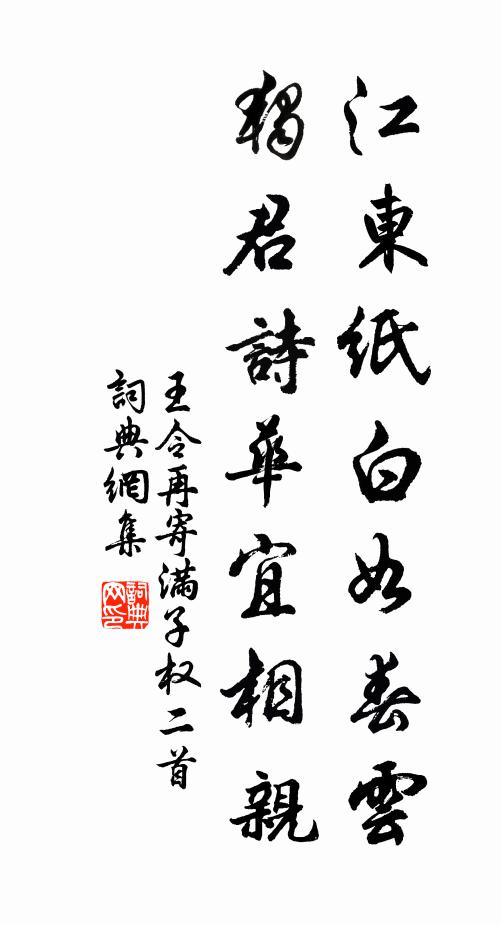 江東紙白如春雲
獨君詩華宜相親
王令再寄滿子权二首
詞典網集
詞典网印